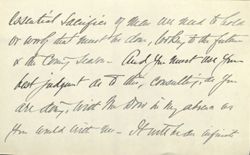 essential sacrifice of men we need to hold
or work that must be done, looking to the future
& the coming season - And you must use your
best judgment as to this, consulting, as you
are doing, with Mr Dow in my absence as
you would with me - It will be an